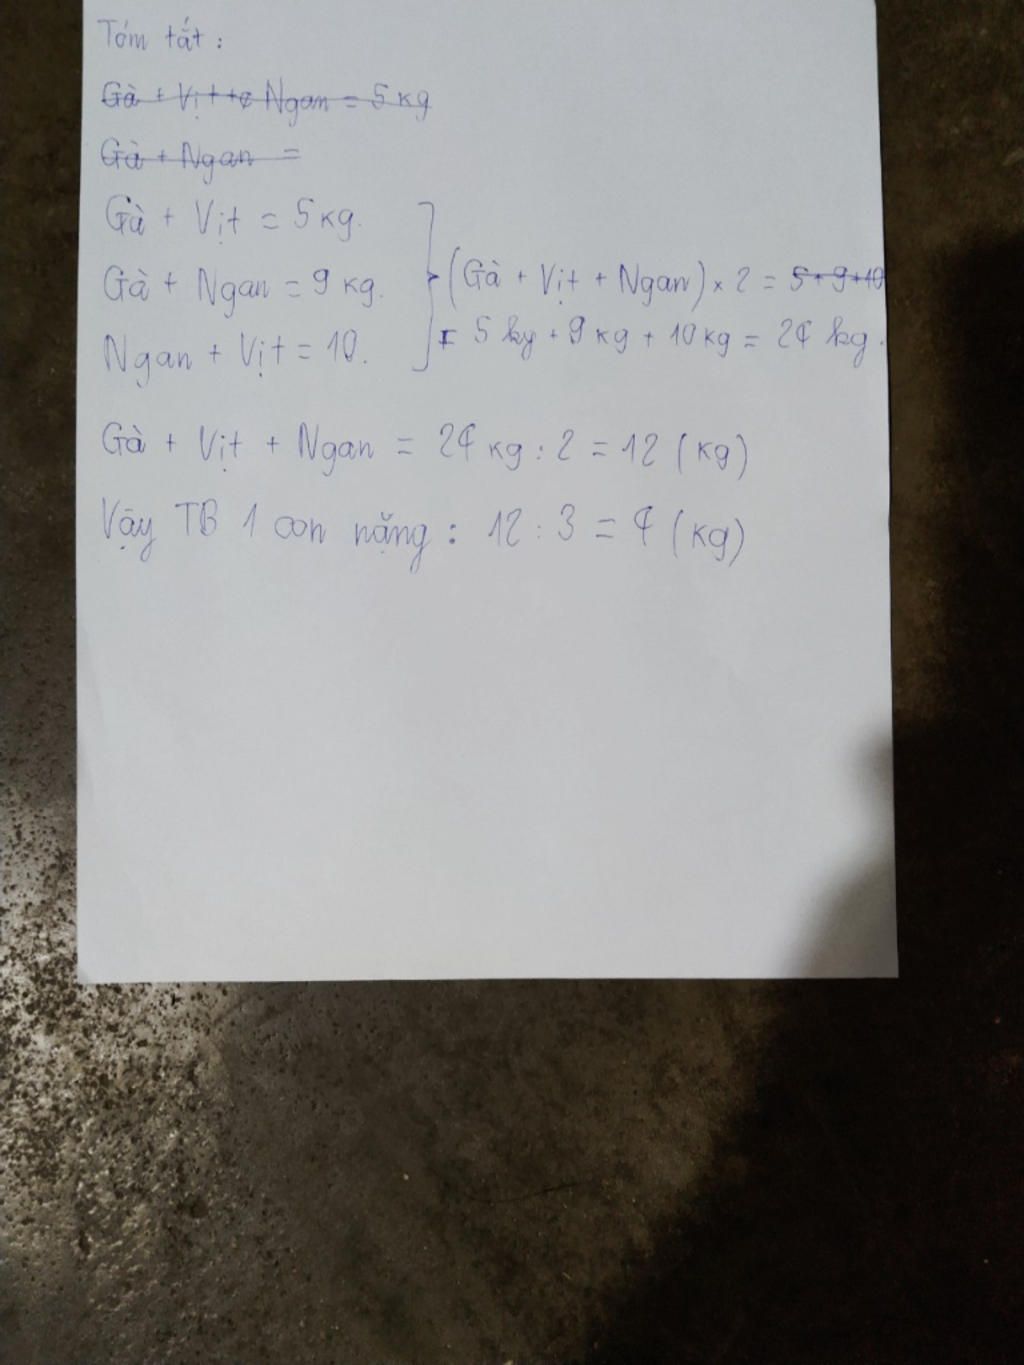 Tóm tắt :
Gà + Vịt + c Ngan = 5 kg
Gà + Ngan =
Gà + Vịt = 5 kg.
Gà + Ngan = 9 kg.
Ngan + Vịt = 10.
(Gà + Vịt + Ngan) × 2 = 5 + 9 + 10
= 5 kg + 9 kg + 10 kg = 24 kg.
Gà + Vịt + Ngan = 24 kg : 2 = 12 (kg)
Vậy TB 1 con nặng : 12 : 3 = 4 (kg)